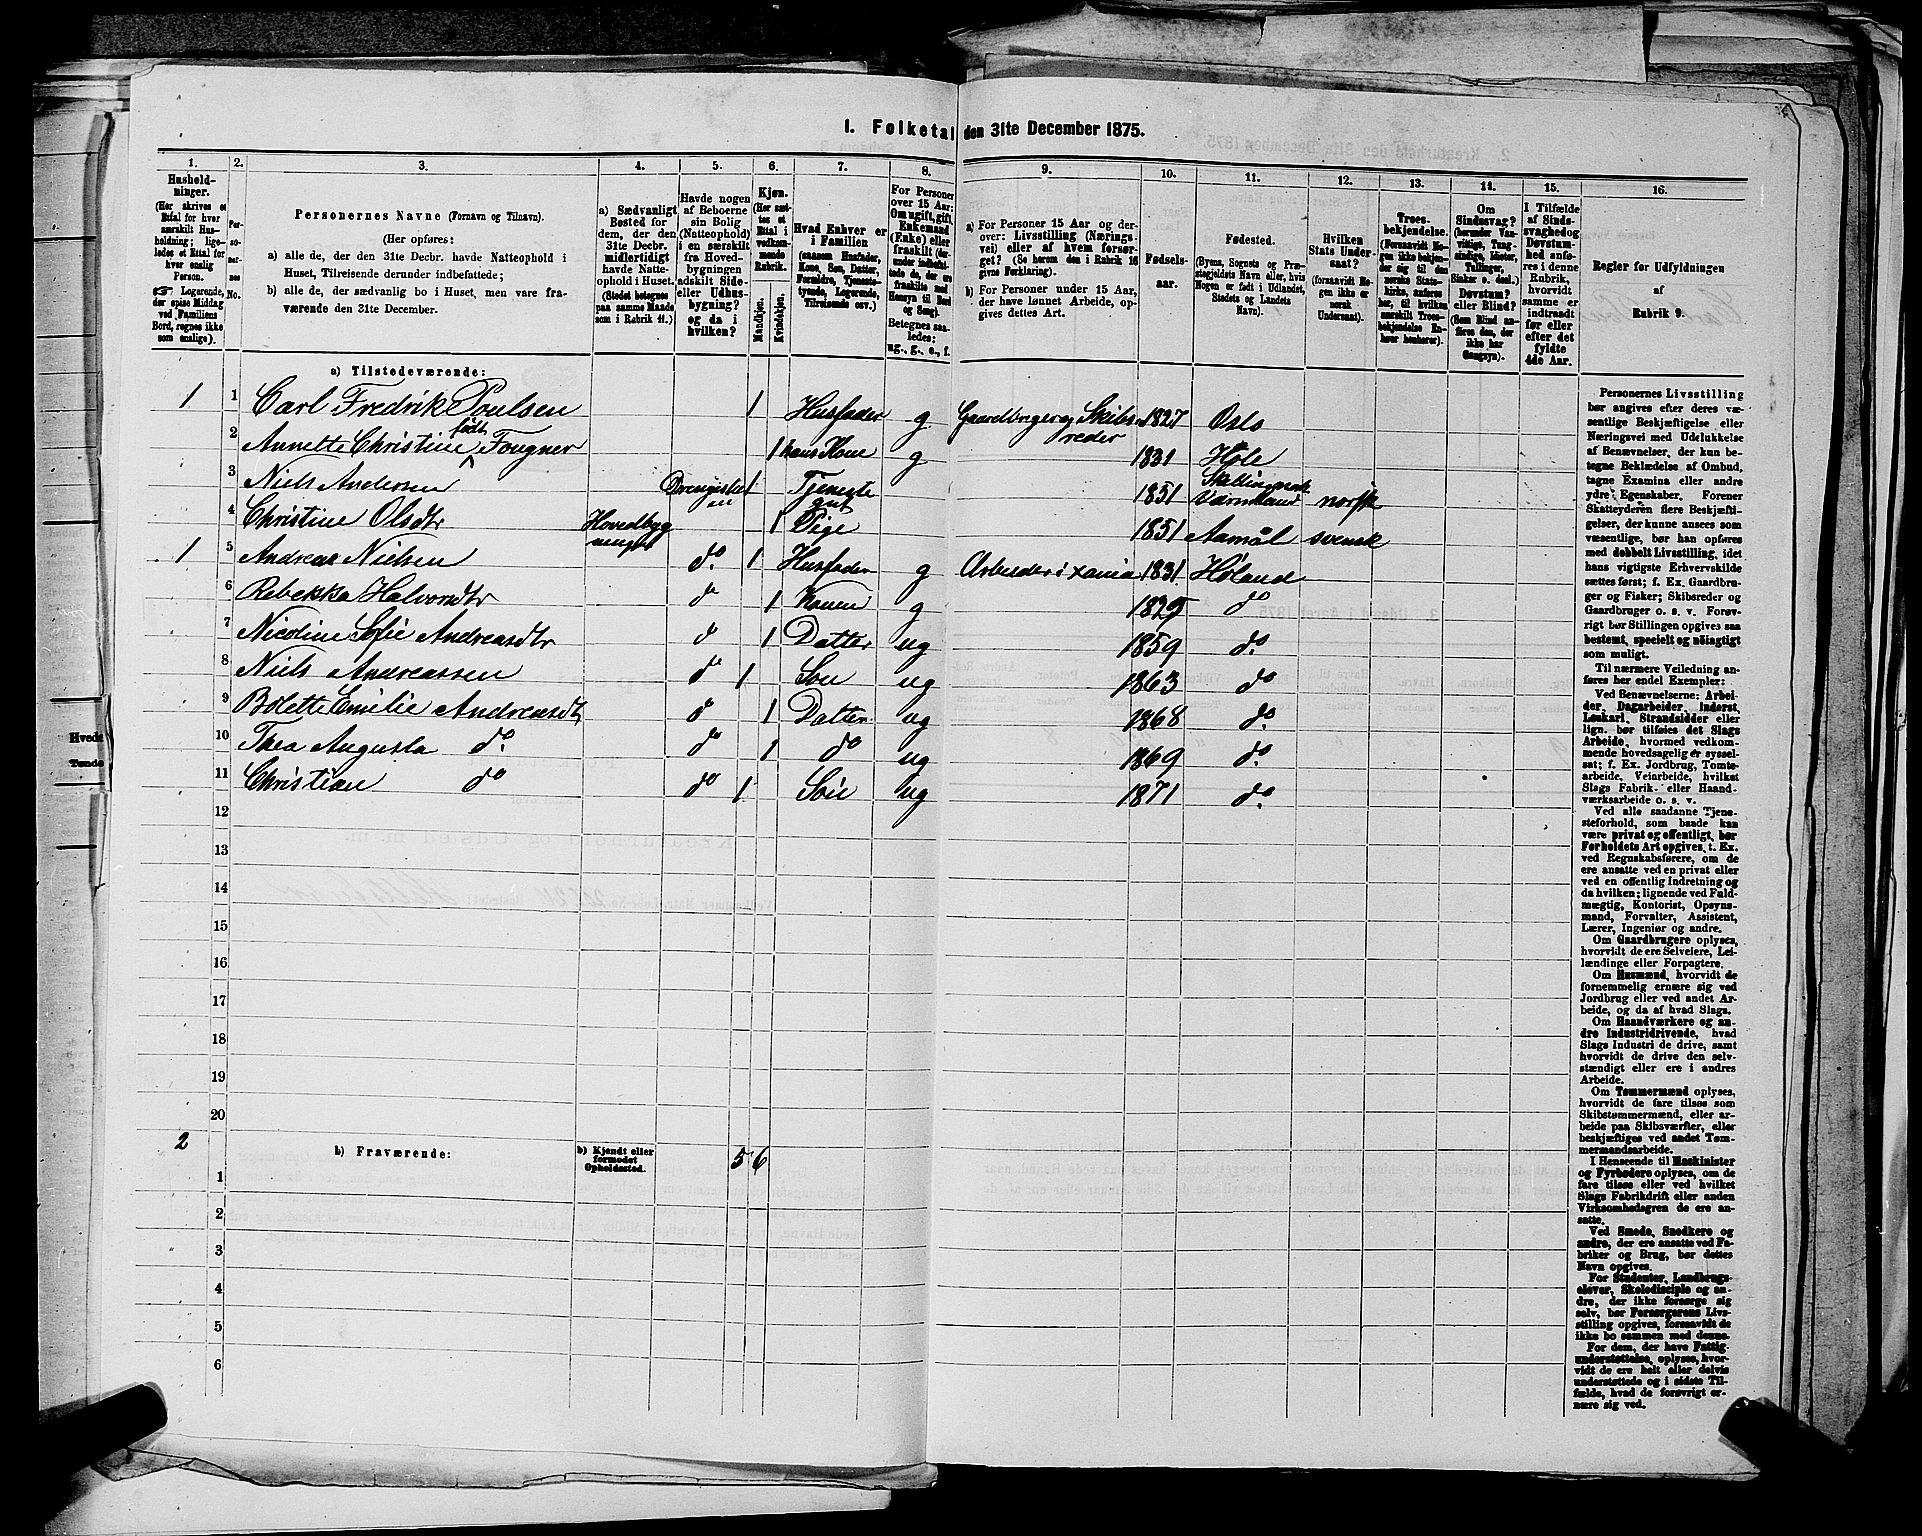 I. Folketal den 31te December 1875.
1. 2. 3. 4. 5. 6. 7. 8. 9. 10. 11. 12. 13. 14. 15. 16.
Husholdninger.
(Her skrives et
Ettal for hver
særskilt Husholdning; ligeledes et Ettal for
hver enslig
Person.
☞ Logerende,
der spise Middag
ved Familiens
Bord, regnes ikke
som enslige).
Personernes No.
Personernes Navne (Fornavn og Tilnavn).
(Her opføres:
a) alle de, der den 31te Decbr. havde Natteophold i
Huset, Tilreisende derunder indbefattede;
b) alle de, der sædvanlig bo i Huset, men vare fraværende den 31te December.
a) Sædvanligt
Bosted for
dem, der den
31te Decbr.
midlertidigt
havde Natteophold i Huset.
(Stedet betegnes
paa samme Maade
som i Rubrik 11.)
Havde nogen
af Beboerne
sin Bolig
(Natteophold)
i en særskilt
fra Hovedbygningen
adskilt Side-
eller Udhusbygning?
og da i
hvilken?
Kjøn.
(Her sættes et
Ettal i
vedkommende
Rubrik.
Mandkjøn.
Kvindekjøn.
Hvad Enhver er
i Familien
(saasom Husfader,
Kone, Søn, Datter,
Forældre, Tjenestetyende, Logerende,
Tilreisende osv.)
For Personer
over 15 Aar:
Om ugift, gift,
Enkemand
(Enke) eller
fraskilt
Betegnes saaledes:
ug., g., e., f.
a) For Personer 15 Aar og derover: Livsstilling (Næringsvei) eller af hvem forsørget? (Se herom den i Rubrik 16
givne Forklaring).
b) For Personer under 15 Aar,
der have lønnet Arbeide, opgives dettes Art.
Fødselsaar.
Fødested.
(Byens, Sognets og Præstegjeldets Navn eller, hvis
Nogen er født i Udlandet,
Stedets og Landets
Navn).
Hvilken
Stats Undersaat?
(forsaavidt Nogen ikke er
norsk
Undersaat).
Troesbekjendelse.
(Forsaavidt Nogen ikke bekjender sig til den
norske Statskirke, anføres
her, til hvilken
særskilt Troesbekjendelse Enhver henhører).
Om
Sindssvag?
Døvstum?
eller Blind?
(Som Blind anføres den, der
ikke har
Gangsyn).
I Tilfælde
af Sindssvaghed og
Døvstumhed anføres
i denne
Rubrik,
hvorvidt
samme er
indtraadt
før eller
efter det
fyldte
4de Aar.
Regler for Udfyldningen
af
Rubrik 9.
a) Tilstedeværende:
1 1 Carl Fredrik Poulsen 1 Husfader g Gaardbruger og Skibsreder 1827 Oslo
2 Annette Christine født Fougner 1 hans Kone g 1831 Hole
3 Niels Andersen 1 Tjenestegut 1851 Värmland norsk
4 Christine Olsdtr Hovedbygningen 1 Pige 1851 Aamål svensk
1 5 Andreas Nielsen do. 1 Husfader g Arbeider i Xania 1831 Høland
6 Rebekka Halvorsdtr do 1 Konen g 1829 do
7 Nicoline Sofie Andreasdtr do 1 Datter ug 1859 do.
8 Niels Andreassen do 1 Søn ug 1863 do
9 Bolette Emilie Andreasdtr do 1 Datter ug 1868 do.
10 Thea Augusta do. do 1 do ug 1869 do.
11 Christian do do 1 Søn ug 1871 do.
12
13
14
15
16
17
18
19
20
2 b) Fraværende: b) Kjendt eller
formodet
Opholdssted. 5 6
1
2
3
4
5
6
Personernes Livsstilling
bør angives efter deres væsentlige Beskjæftigelse eller
Næringsvei med Udelukkelse
af Benævnelser, der kun betegne Beklædelse af Ombud,
tagne Examina eller andre
ydre Egenskaber. Forener
Skatteyderen flere Beskjæftigelser, der kunne ansees som
væsentlige, bør han opføres
med dobbelt Livsstilling, idet
hans vigtigste Erhvervskilde
sættes først; f. Ex. Gaardbruger og Fisker; Skibsreder og
Gaardbruger o. s. v. Forøvrigt bør Stillingen opgives saa
bestemt, specielt og nøiagtigt
som muligt.
Til nærmere Veiledning anføres her endel Exempler:
Ved Benævnelserne: Arbeider, Dagarbeider, Inderst,
Løskarl, Strandsidder eller
lign. bør tilføies det Slags
Arbeide, hvormed vedkommende hovedsagelig er sysselsat; f. Ex. Jordbrug, Tomtearbeide, Veiarbeide, hvilket
Slags Fabrik- eller Haandværksarbeide o. s. v.
Ved alle saadanne Tjenesteforhold, som baade kan
være privat og offentligt, bør
Forholdets Art opgives, t. Ex.
ved Regnskabsførere, om de
ere ansatte ved en privat eller
ved en offentlig Indretning og
da hvilken; lignende ved Fuldmægtig, Kontorist, Opsynsmand, Forvalter, Assistent,
Lærer, Ingeniør og andre.
Om Gaardbrugere oplyses,
hvorvidt de ere Selveiere, Leilændinge eller Forpagtere.
Om Husmænd, hvorvidt de
fornemmelig ernære sig ved
Jordbrug eller ved andet Arbeide, og da af hvad Slags.
Om Haandværkere og andre Industridrivende, hvad
Slags Industri de drive, samt
hvorvidt de drive den selvstændigt eller ere i andres
Arbeide.
Om Tømmermænd oplyses,
hvorvidt de fare tilsøs som
Skibstømmermænd, eller arbeide paa Skibsværfter, eller
beskjæftiges ved andet Tømmermandsarbeide.
I Henseende til Maskinister
og Fyrbødere oplyses, om de
fare tilsøs eller ved hvilket
Slags Fabrikdrift eller anden
Virksomhedsgren de ere ansatte.
Ved Smede, Snedkere og
andre, der ere ansatte ved Fabriker og Brug, bør dettes
Navn opgives.
For Studenter, Landbrugselever, Skoledisciple og andre, der ikke forsørge sig
selv, bør Forsørgerens Livsstilling opgives, forsaavidt de
ikke bo sammen med denne.
For dem, der have Fattigunderstøttelse, oplyses, hvorvidt de ere helt eller delvis
understøttede og i sidste Tilfælde, hvad de forøvrigt ernære sig ved.
Hvede
Tønde